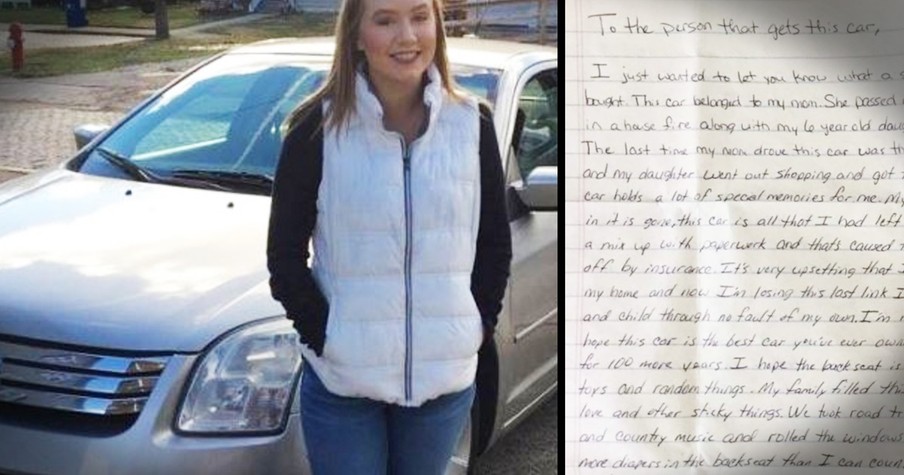 To the person that gets this car,
I just wanted to let you know what a
bought. This car belonged to my mom. She passed
in a house fire along with my 6 year old
The last time my mom drove this car was
and my daughter went out shopping and got
car holds a lot of special memories for me.
in it is gone, this car is all that I had left
a mix up with paperwork and that's caused
off by insurance. It's very upsetting that
my home and now I'm losing this last link
and child through no fault of my own. I'm
hope this car is the best car you've ever
for 100 more years. I hope the backseat is
toys and random things. My family filled
love and other sticky things. We took road
and country music and rolled the windows
more diapers in the backseat than I can